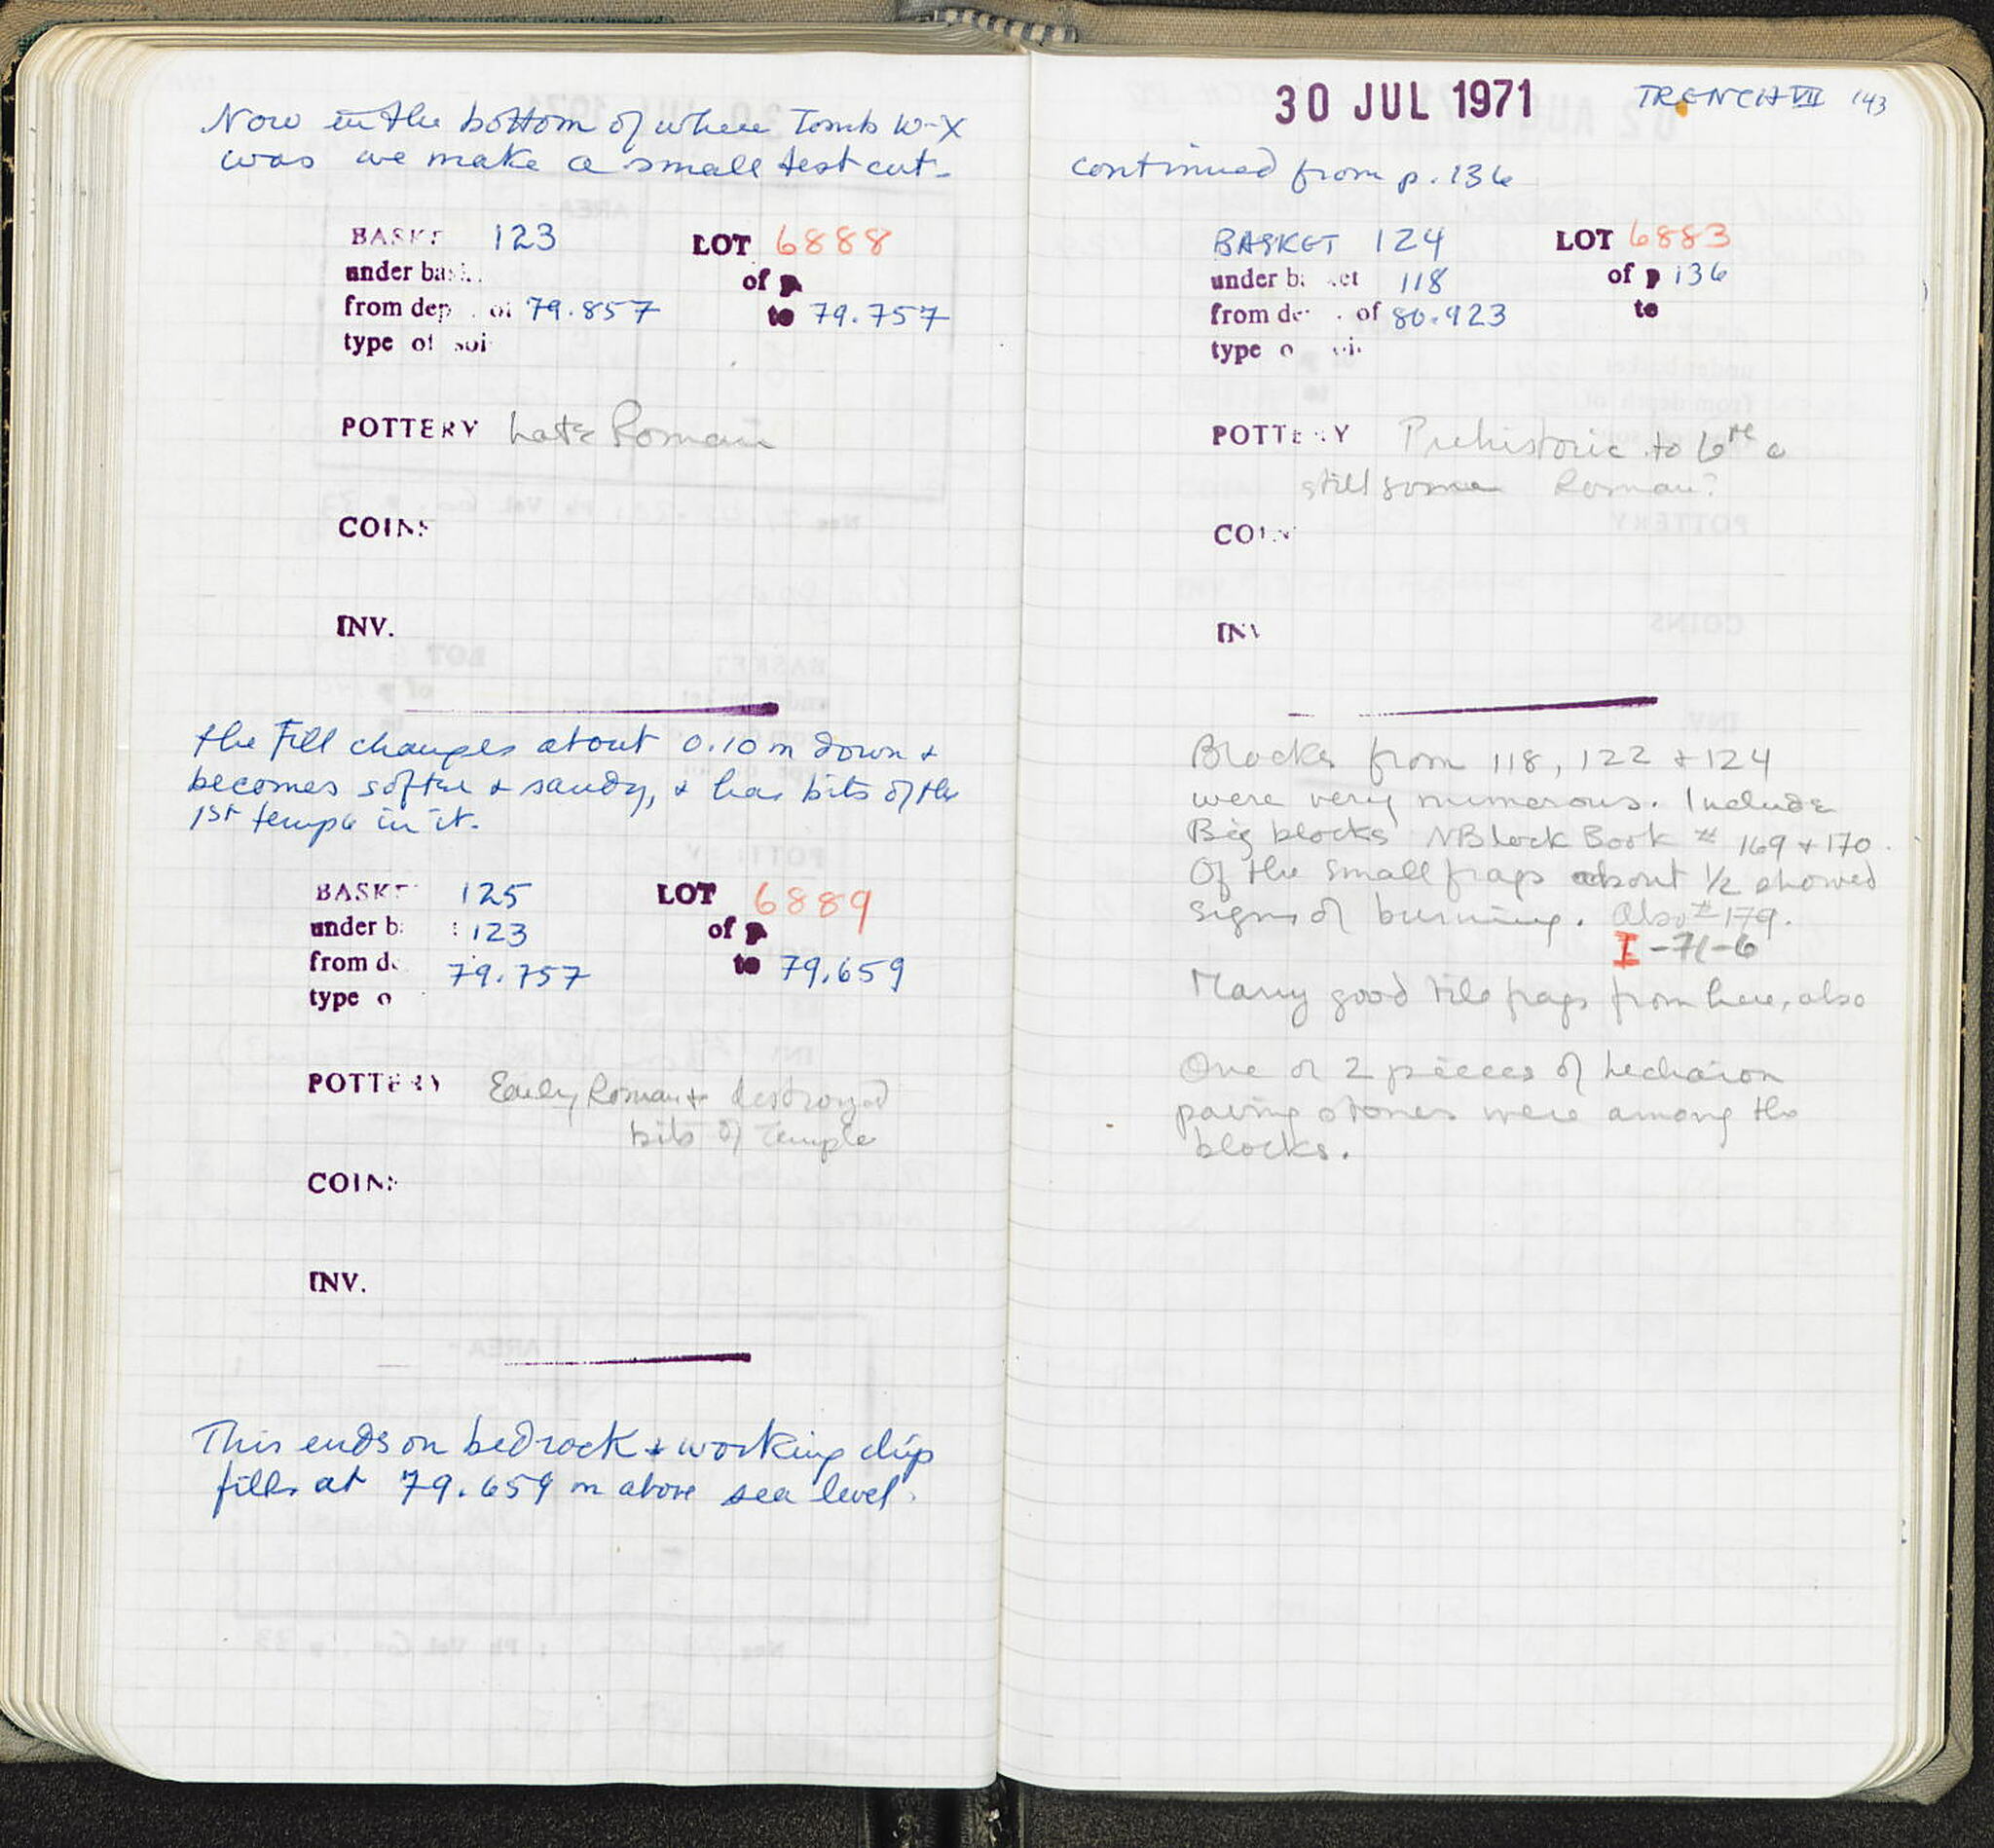 Now in the bottom of where Tomb W-X
was we make a small test cut.
BASKE 123 LOT 6888
under bas
from dep of 79.857 of p
to 79.757
type of soi
POTTERY Late Roman
COINS
INV.
the Fill changes about 0.10 m down +
becomes softer + sandy, + has bits of the
1st temple in it.
BASKE 125 LOT 6889
under b 123 of p
from d 79.757 to 79.659
type o
POTTERY Early Roman + destroyed
bits of Temple
COINS
INV.
This ends on bedrock + working chip
fills at 79.659 m above sea level.
30 JUL 1971 TRENCH VII 143
continued from p. 136
BASKET 124 LOT 6883
under basket 118 of p 136
from de of 80.923 to
type o oi
POTTERY Prehistoric to 6th c
still some Roman?
COIN
INV
Blocks from 118, 122 + 124
were very numerous. Include
Big blocks NBlock Book # 169 + 170.
Of the small frags about 1/2 showed
signs of burning. Also # 179.
I-71-6
Many good tile frags from here, also
One or 2 pieces of Lechaion
paving stones were among the
blocks.